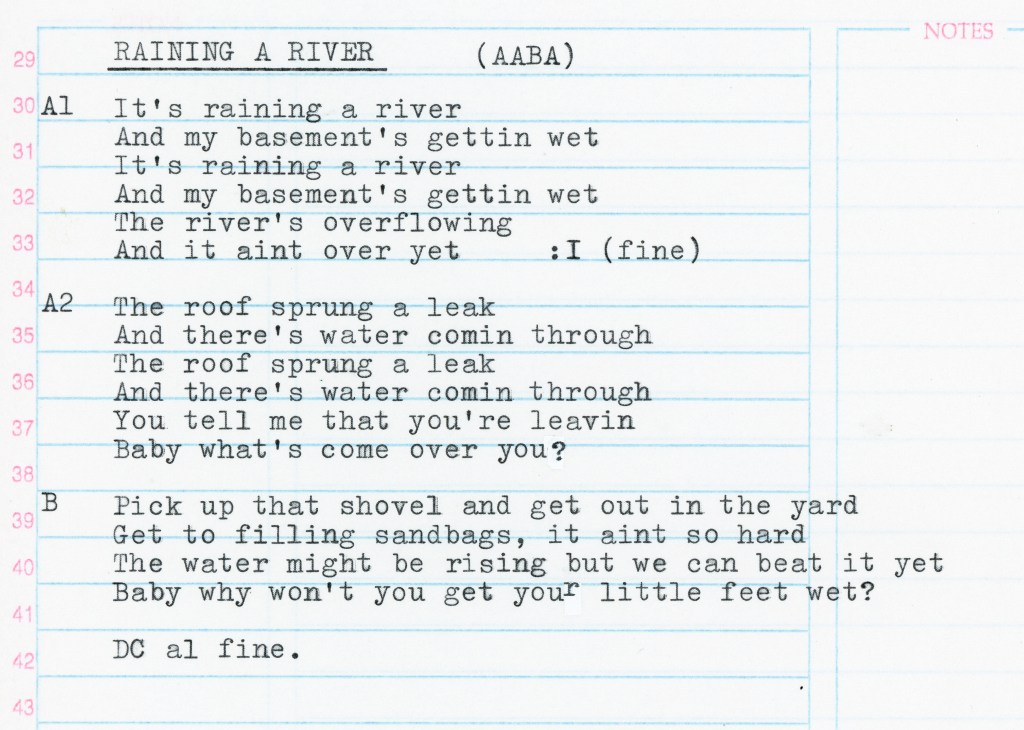 NOTES
29 RAINING A RIVER (AABA)
30 A1 It's raining a river
And my basement's gettin wet
31 It's raining a river
32 And my basement's gettin wet
The river's overflowing
33 And it aint over yet :I (fine)
34
A2 The roof sprung a leak
35 And there's water comin through
The roof sprung a leak
36 And there's water comin through
37 You tell me that you're leavin
Baby what's come over you?
38
B Pick up that shovel and get out in the yard
39 Get to filling sandbags, it aint so hard
40 The water might be rising but we can beat it yet
Baby why won't you get your little feet wet?
41
42 DC al fine.
43